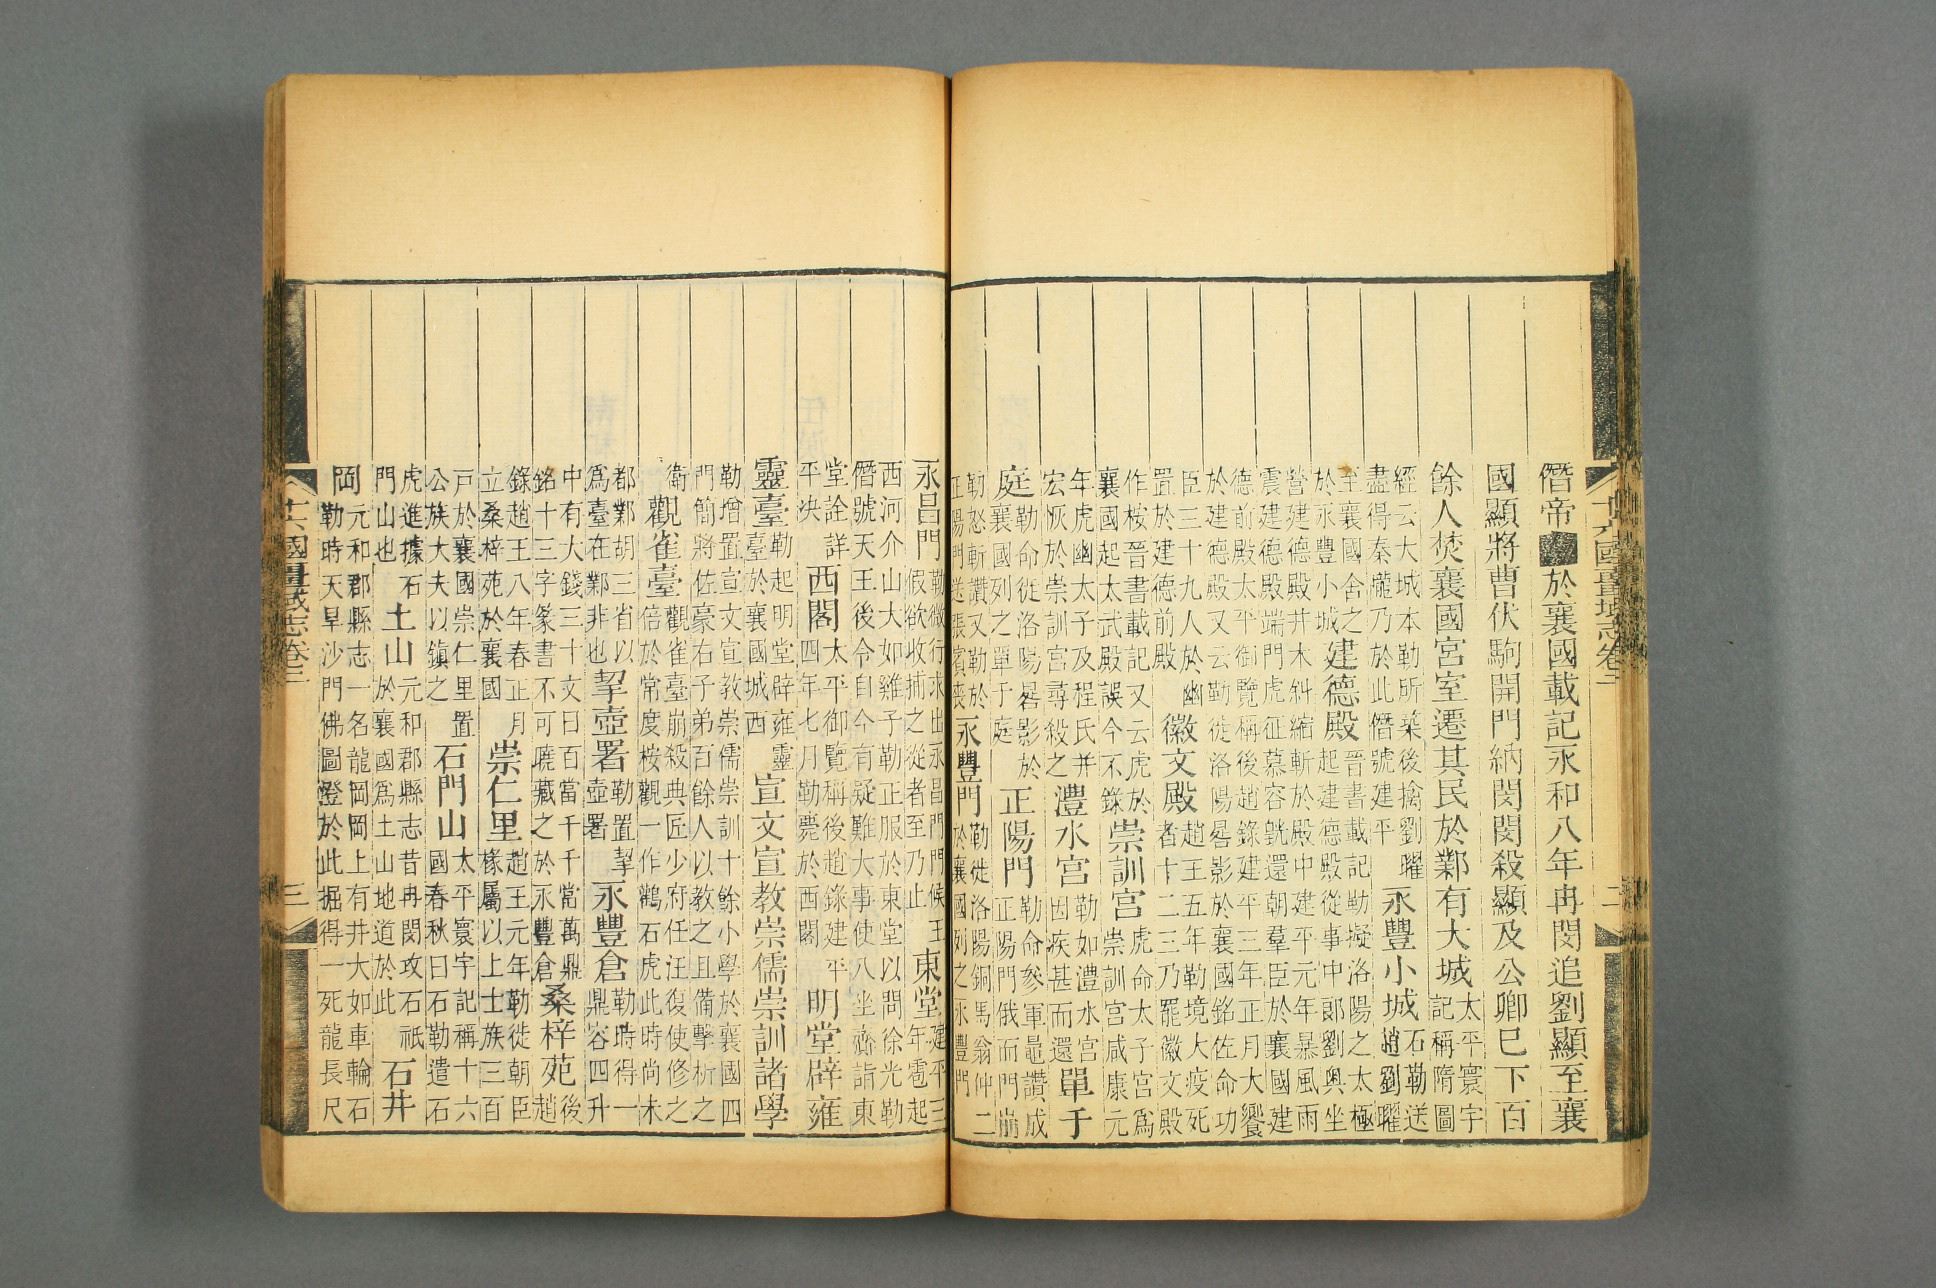 十六國疆域志卷三 二
僭帝於襄國載記永和八年冉閔追劉顯至襄
國顯將曹伏駒開門納閔閔殺顯及公卿巳下百
餘人焚襄國宮室遷其民於鄴有大城太平寰宇記稱隋圖
經云大城本勒所築後擒劉曜盡得秦隴乃於此僭號建平永豐小城石勒送趙劉曜
至襄國舍之於永豐小城建德殿晉書載記勒擬洛陽之太極起建德殿從事中郎劉奧坐
營建德殿井木斜縮斬於殿中建平元年暴風雨震建德殿端門虎征慕容皝還朝羣臣於襄國建
德前殿太平御覽稱後趙錄建平三年正月大饗於建德殿又云勒徙洛陽晷影於襄國銘佐命功
臣三十九人於幽置於建德前殿徽文殿趙王五年勒境大疫死者十二三乃罷徽文殿
作桉晉書載記又云虎於襄國起太武殿誤今不錄崇訓宮虎命太子宮爲崇訓宮咸康元
年虎幽太子及程氏幷宏恢於崇訓宮尋殺之澧水宮勒如澧水宮因疾甚而還單于
庭勒命徙洛陽晷影於襄國列之單于庭正陽門勒命參軍鼂讚成正陽門俄而門崩
勒怒斬讚又勒於正陽門送張賓喪永豐門勒徙洛陽銅馬翁仲二於襄國列之永豐門
永昌門勒微行求出永昌門門候王假欲收捕之從者至乃止東堂建平三年雹起
西河介山大如雞子勒正服於東堂以問徐光勒僭號天王後令自今有疑難大事使八坐齎詣東
堂詮詳平決西閣太平御覽稱後趙錄建平四年七月勒薨於西閣明堂辟雍
靈臺勒起明堂辟雍靈臺於襄國城西宣文宣教崇儒崇訓諸學
勒增置宣文宣教崇儒崇訓十餘小學於襄國四門簡將佐豪右子弟百餘人以教之且備擊柝之
衛觀雀臺觀雀臺崩殺典匠少府任汪復使修之倍於常度桉觀一作鸛石虎此時尚未
都鄴胡三省以爲臺在鄴非也挈壺署勒置挈壺署永豐倉勒時得一鼎容四升
中有大錢三十文曰百當千千當萬鼎銘十三字篆書不可曉藏之於永豐倉桑梓苑後趙
錄趙王八年春正月立桑梓苑於襄國崇仁里趙王元年勒徙朝臣椽屬以上士族三百
戶於襄國崇仁里置公族大夫以鎮之石門山太平寰宇記稱十六國春秋曰石勒遣石
虎進據石門山也土山元和郡縣志昔冉閔攻石祇於襄國爲土山地道於此石井
岡元和郡縣志一名龍岡岡上有井大如車輪石勒時天旱沙門佛圖澄於此掘得一死龍長尺
十六國疆域志卷三 三